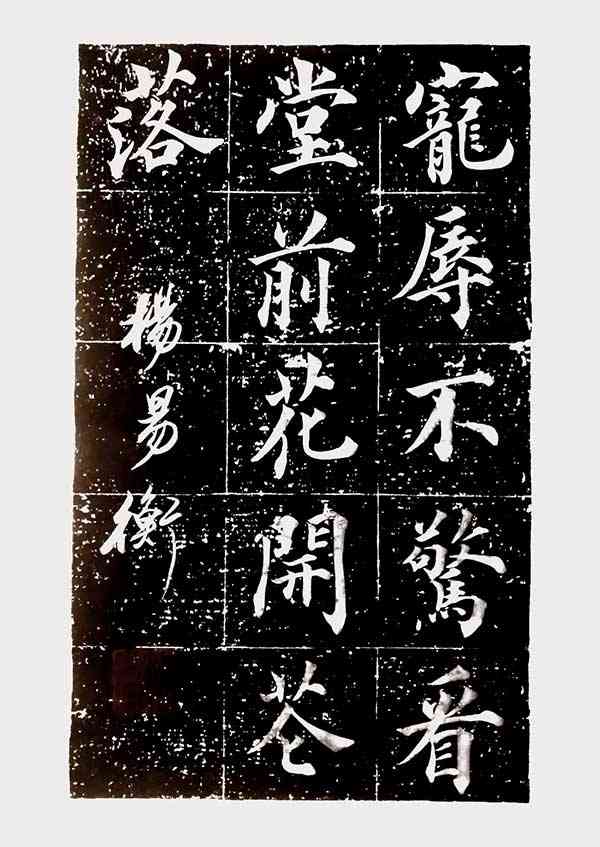 寵辱不驚看
堂前花開芲
落
楊易衡